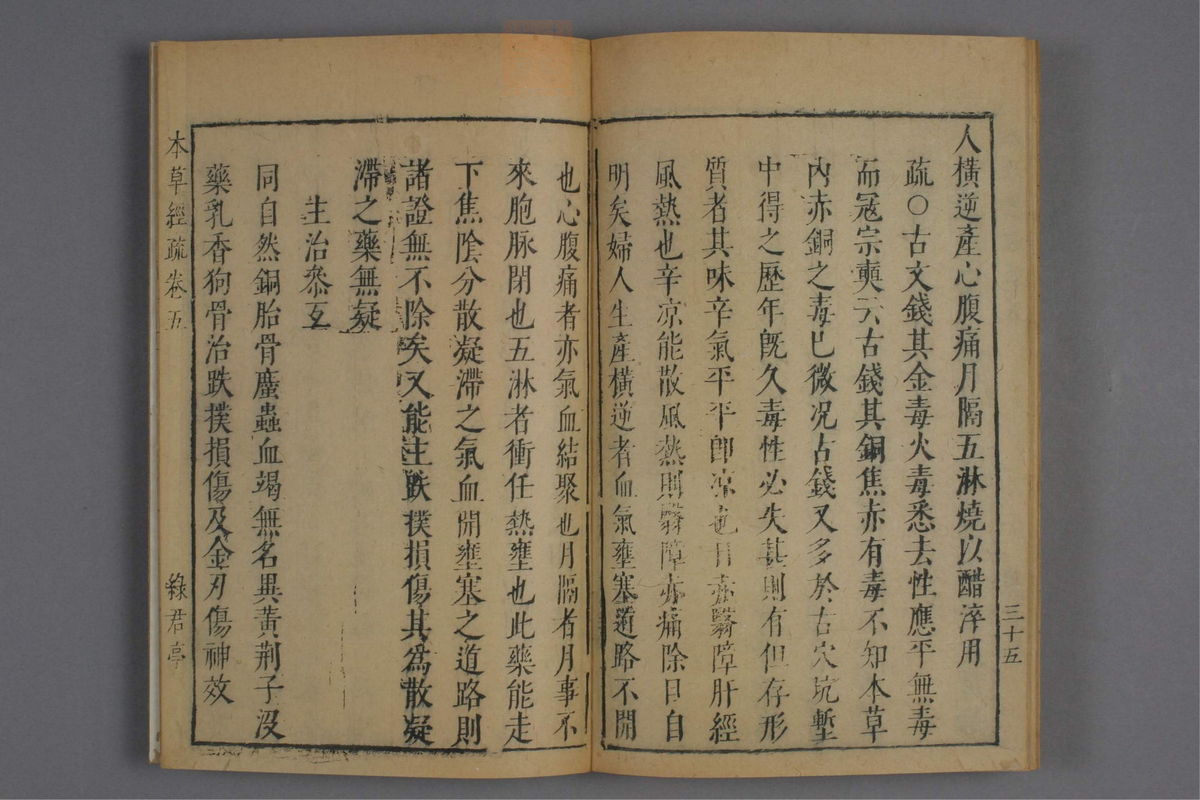 三十五
人橫逆產心腹痛月隔五淋燒以醋淬用
疏○古文錢其金毒火毒悉去性應平無毒
而冦宗奭云古錢其銅焦赤有毒不知本草
內赤銅之毒已微况古錢又多於古穴坑塹
中得之歷年旣久毒性必失甚則有但存形
質者其味辛氣平平卽凉也目赤翳障肝經
風熱也辛凉能散風熱則翳障赤痛除目自
明矣婦人生產橫逆者血氣壅塞道路不開
也心腹痛者亦氣血結聚也月隔者月事不
來胞脉閉也五淋者衝任熱壅也此藥能走
下焦陰分散凝滯之氣血開壅塞之道路則
諸證無不除矣又能主跌撲損傷其爲散凝
滯之藥無疑
主治參互
同自然銅胎骨䗪蟲血竭無名異黃荆子沒
藥乳香狗骨治跌撲損傷及金刃傷神效
本草經疏卷五
綠君亭